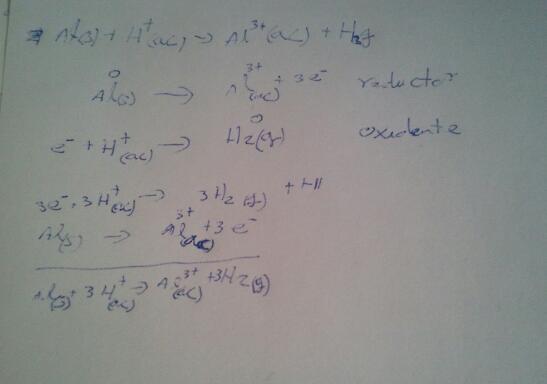 Al(s) + H⁺(ac) → Al³⁺(ac) + H₂g
Al⁰(s) → Al³⁺(ac) + 3e⁻ reductor
e⁻ + H⁺(ac) → H₂⁰(g) oxidente
3e⁻ + 3H⁺(ac) → 3H₂(g)
Al(s) → Al³⁺(ac) + 3e⁻
Al(s) + 3H⁺(ac) → Al³⁺(ac) + 3H₂(g)